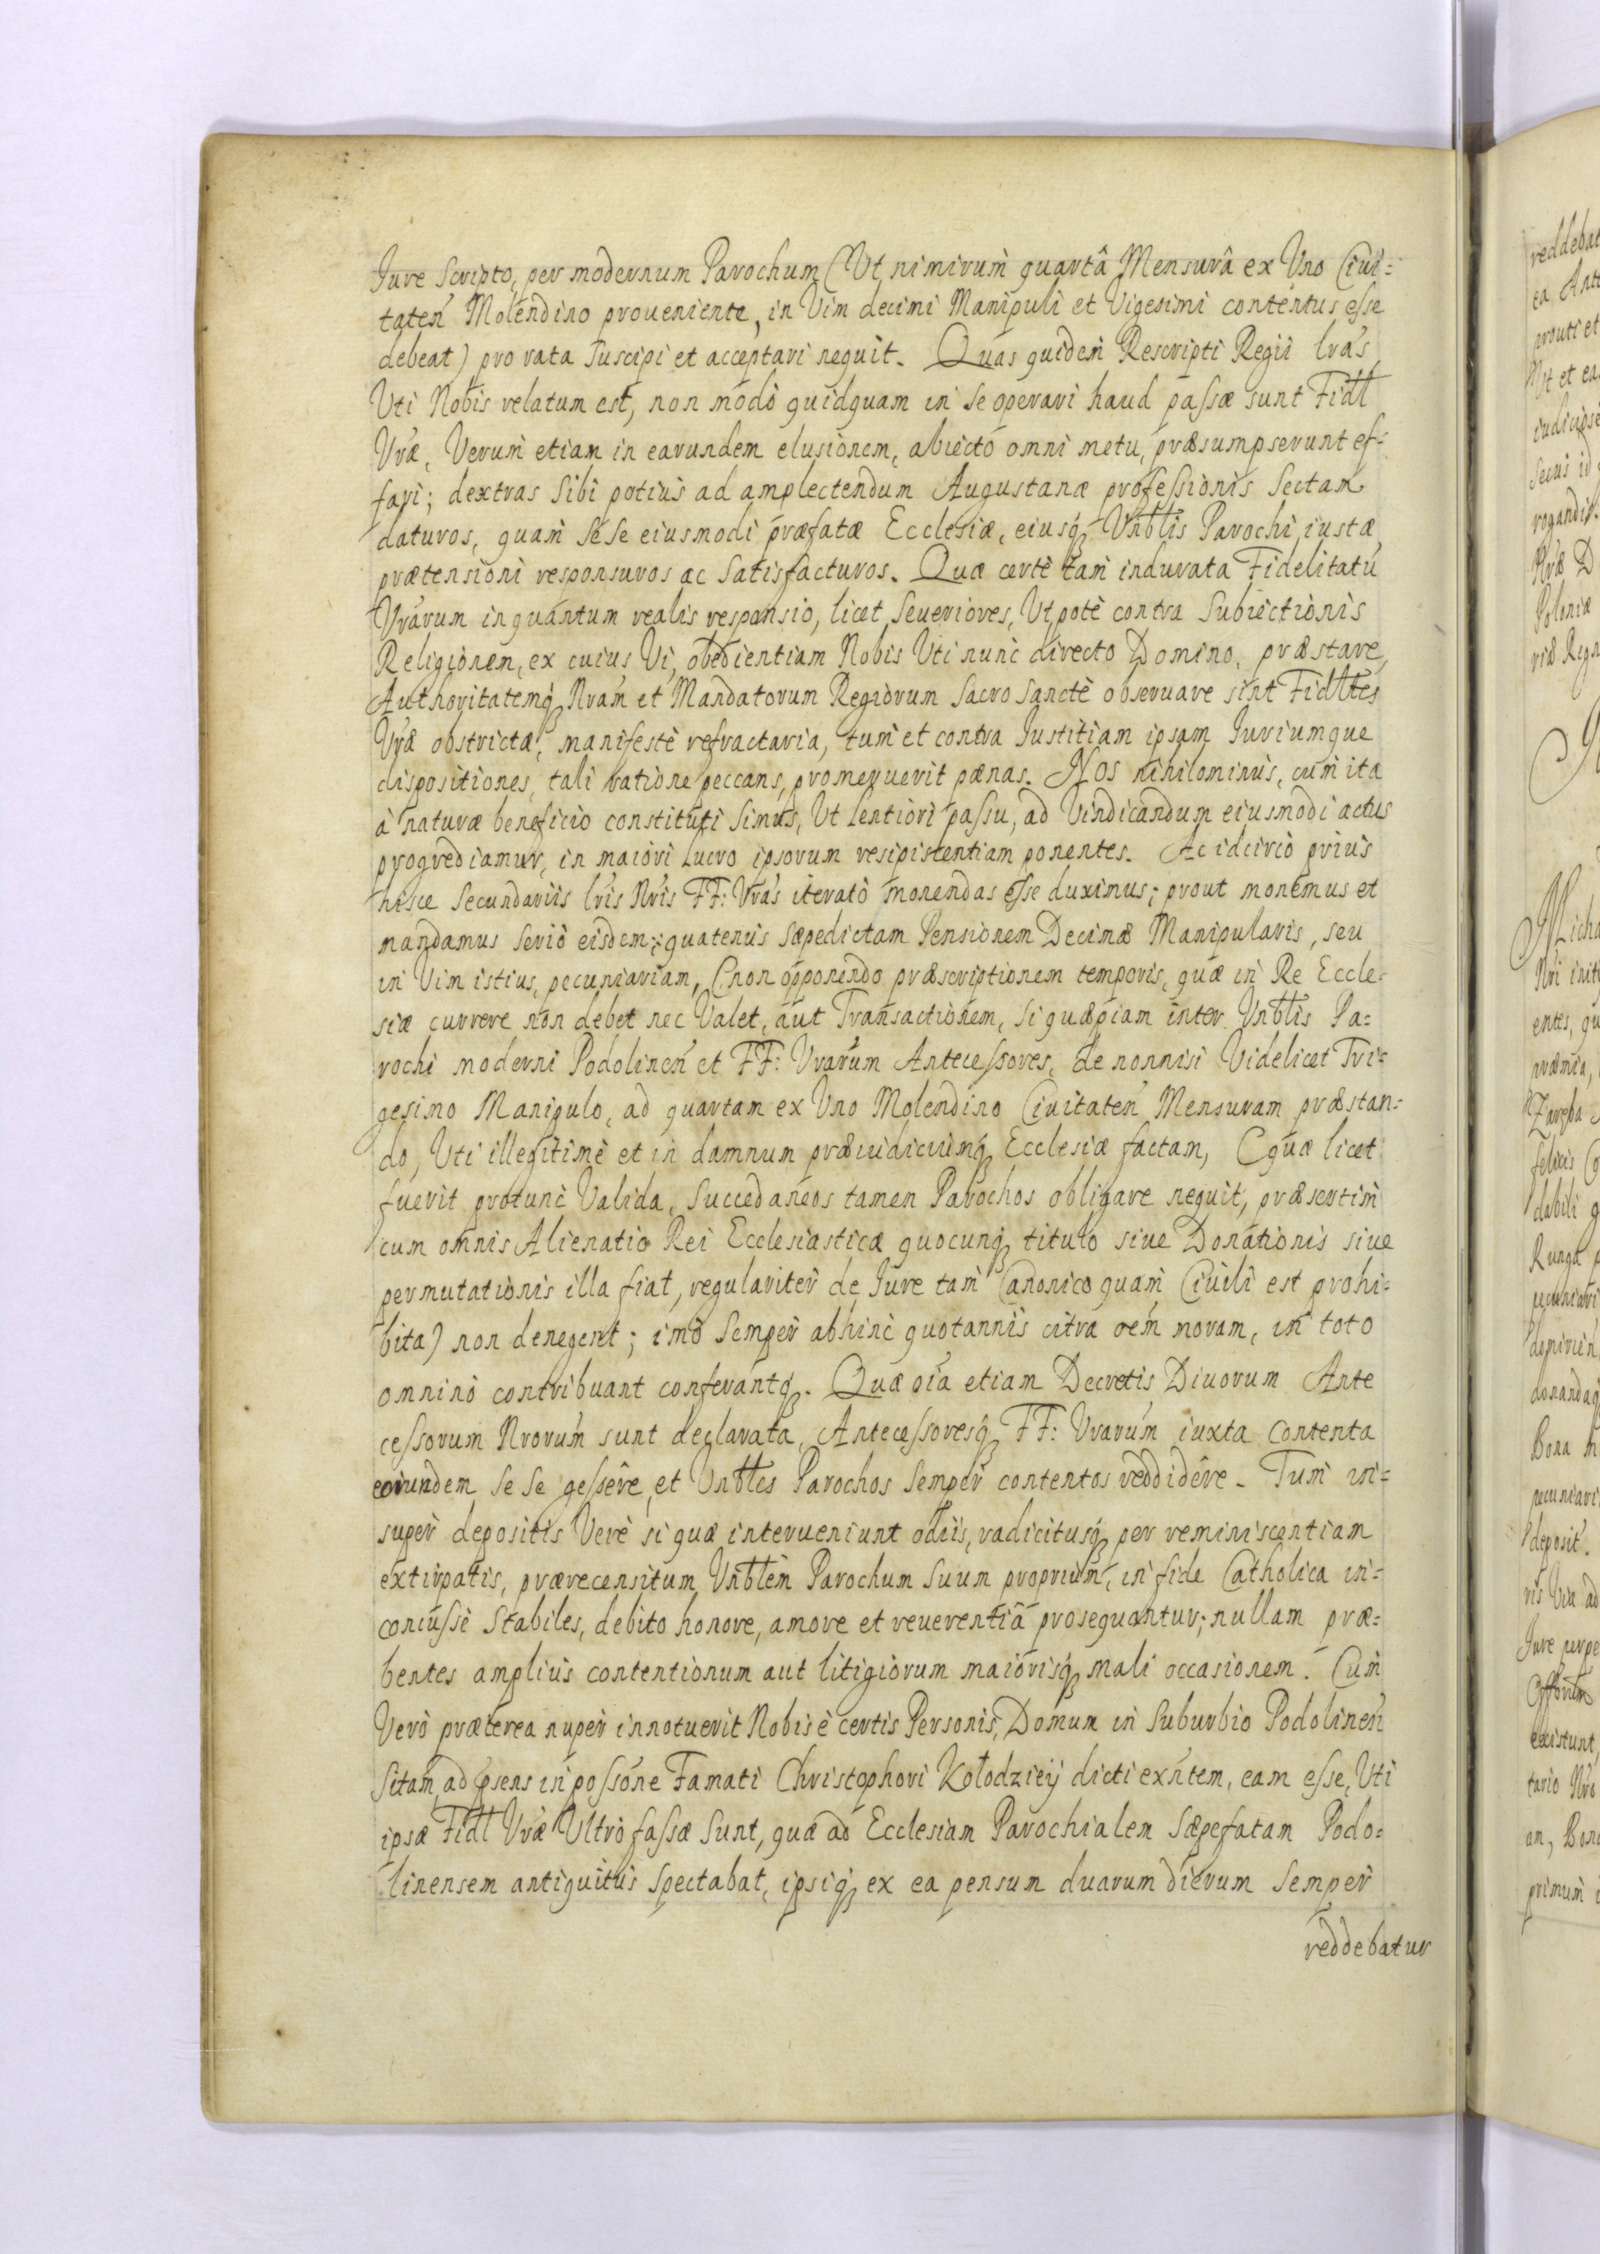 Jure Scripto, per modernum Parochum (Ut nimirum quartâ Mensurâ ex Uno Ciui=
taten̄ Molendino proueniente, in Vim decimi Manipuli et Vigesimi contentus esse
debeat) pro rata suscipi et acceptari nequit. Quas quidem Rescripti Regii lr̄as
Uti Nobis relatum est, non modò quidquam in se operari haud passæ sunt Fidl̄t
Vr̄æ, Verum etiam in earundem elusionem, abiecto omni metu, præsumpserunt ef=
fari; dextras sibi potius ad amplectendum Augustanæ professionis Sectam
daturos, quam sese eiusmodi præfatæ Ecclesiæ, eiusq, Vnbl̄tis Parochi iustæ
prætensioni responsuros ac satisfacturos. Quæ certè tam indurata Fidelitatū
Vr̄arum inquantum realis responsio, licet Seueriores, Utpotè contra Subiectionis
Religionem, ex cuius Vi, obedientiam Nobis Uti nunc directo Domino, præstare,
Authoritatemq, Nr̄am et Mandatorum Regiorum Sacro Sanctè obseruare sint Fidl̄tes
Vr̄æ obstrictæ, manifestè refractaria, tum et contra Justitiam ipsam Juriumque
dispositiones, tali ratione peccans, promeruerit pænas. Nos nihilominùs, cum ita
à naturæ beneficio constituti simus, Ut lentiori passu, ad Vindicandum eiusmodi actus
progrediamur, in maiori lucro ipsorum resipistentiam ponentes. Ac idcirco prius
hisce Secundariis lr̄is Nr̄is FF: Vr̄as iterato monendas esse duximus; prout monemus et
mandamus seriò eisdem; quatenùs sæpedictam Pensionem Decimæ Manipularis, seu
in Vim istius, pecuniariam, (non opponendo præscriptionem temporis, quæ in Re Eccle=
siæ currere non debet nec Valet, aut Transactionem, si quæpiam inter Vnbl̄tis Pa=
rochi moderni Podolinen̄ et FF: Vr̄arum Antecessores, de nonnisi Videlicet Tri=
gesimo Manipulo, ad quartam ex Uno Molendino Ciuitaten̄ Mensuram præstan=
do, Uti illegitimè et in damnum præiudiciumq, Ecclesiæ factam, (quæ licet
fuerit protunc Valida, Succedaneos tamen Parochos obligare nequit, præsertim
cum omnis Alienatio Rei Ecclesiasticæ quocunq, titulo siue Donationis siue
permutationis illa fiat, regulariter de Jure tam Canonico quam Ciuili est prohi=
bita) non denegent; imò Semper abhinc quotannis citra oem̄ moram, in toto
omninò contribuant conferantq. Quæ oīa etiam Decretis Diuorum Ante
cessorum Nr̄orum sunt declarata, Antecessoresq, FF: Vr̄arum iuxta contenta
eorundem se se gessêre, et Vnbl̄tes Parochos Semper contentos reddidêre. Tum in=
super depositis Verè si quæ interueniunt odiis, radicitusq, per reminiscentiam
extirpatis, prærecensitum Vnbl̄tem Parochum Suum proprium, in fide Catholica in=
concussè Stabiles, debito honore, amore et reuerentiâ prosequantur; nullam præ=
bentes amplius contentionum aut litigiorum maiorisq, mali occasionem. Cum
Verò præterea nuper innotuerit Nobis è certis Personis, Domum in Suburbio Podolinen̄
Sitam, ad p̄sens in posso̅ne Famati Christophori Kołodzieij dicti exn̄tem, eam esse, Uti
ipsæ Fidl̄t Vr̄æ Ultrò fassæ sunt, quæ ad Ecclesiam Parochialem Sæpefatam Podo=
linensem antiquitùs Spectabat, ipsiq, ex ea pensum duarum dierum Semper
reddebatur